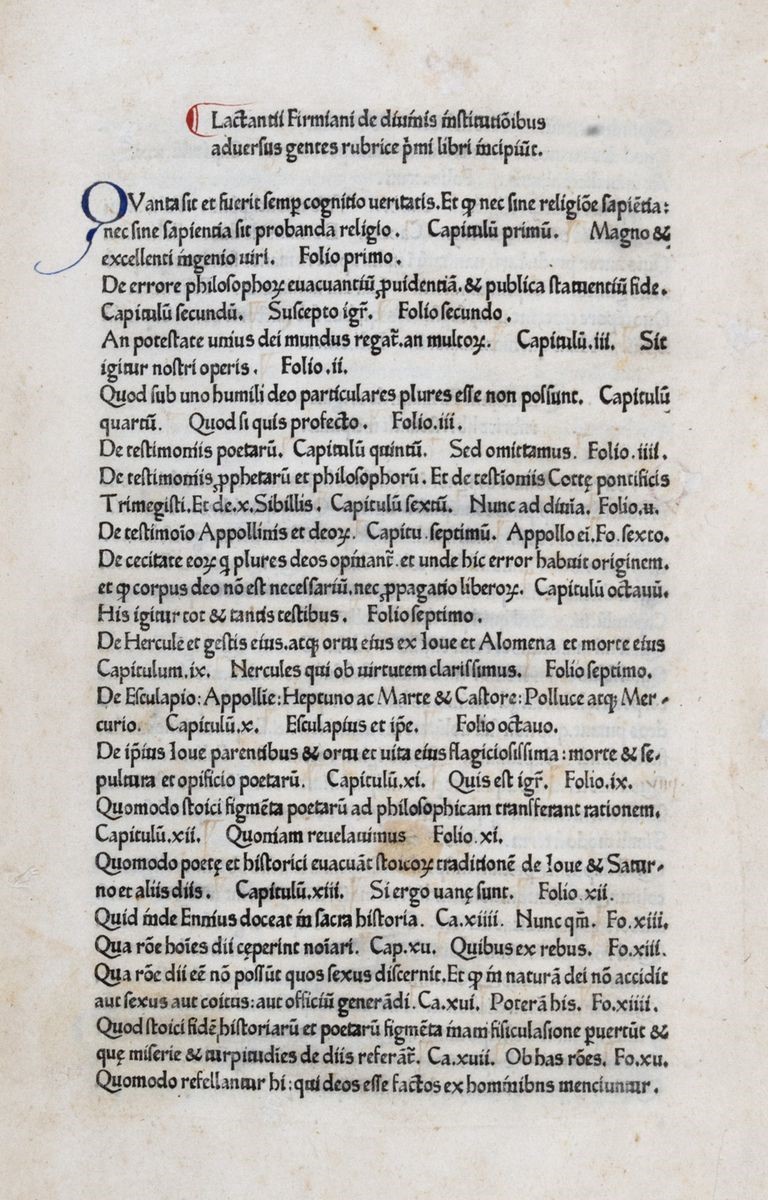 Lactantii Firmiani de diuinis institutiōibus
aduersus gentes rubrice p̄mi libri incipiūt.
QVanta sit et fuerit semꝑ cognitio veritatis. Et ꝙ nec sine religiōe sapiētia:
nec sine sapientia sit probanda religio. Capitulū primū. Magno &
excellenti ingenio uiri. Folio primo.
De errore philosophoꝝ euacuantiū ꝓuidentiā. & publica statuentiū fide.
Capitulū secundū. Suscepto igr̄. Folio secundo.
An potestate unius dei mundus regat̄. an multoꝝ. Capitulū .iii. Sit
igitur nostri operis. Folio .ii.
Quod sub uno humili deo particulares plures esse non possunt. Capitulū
quartū. Quod si quis profecto. Folio .iii.
De testimoniis poetarū. Capitulū quintū. Sed omittamus. Folio .iiii.
De testimoniis ꝓphetarū et philosophorū. Et de testīoniis Cottę pontificis
Trimegisti. Et de .x. Sibillis. Capitulū sextū. Nunc ad diuīa. Folio .u.
De testimoīo Appollinis et deoꝝ. Capitu. septimū. Appollo ei. Fo. sexto.
De cecitate eoꝝ q̄ plures deos opinant̄. et unde hic error habuit originem.
et ꝙ corpus deo nō est necessariū. nec ꝓpagatio liberoꝝ. Capitulū octauū.
His igitur tot & tantis testibus. Folio septimo.
De Hercule et gestis eius. atqꝫ ortu eius ex Ioue et Alomena et morte eius
Capitulum .ix. Hercules qui ob uirtutem clarissimus. Folio septimo.
De Esculapio: Appollīe: Neptuno ac Marte & Castore: Polluce atqꝫ Mer-
curio. Capitulū .x. Esculapius et ip̄e. Folio octauo.
De ip̄ius Ioue parentibus & ortu et uita eius flagiciosissima: morte & se-
pultura et opificio poetarū. Capitulū .xi. Quis est igr̄. Folio .ix.
Quomodo stoici figmēta poetarū ad philosophicam transferant rationem.
Capitulū .xii. Quoniam reuelauimus Folio .xi.
Quomodo poetę et historici euacuāt stoicoꝝ traditionē de Ioue & Satur-
no et aliis diis. Capitulū .xiii. Si ergo uanę sunt. Folio .xii.
Quid inde Ennius doceat in sacra historia. Ca .xiiii. Nunc qm̄. Fo .xiii.
Qua rōe hoīes dii cęperint noīari. Cap .xu. Quibus ex rebus. Fo .xiii.
Qua rōe dii eē nō possūt quos sexus discernit. Et ꝙ in naturā dei nō accidit
aut sexus aut coitus: aut officiū generādi. Ca .xui. Poterā his. Fo .xiiii.
Quod stoici fidē historiarū et poetarū figmēta inani fisiculasione ꝑuertūt &
quę miserie & turpitudīes de diis referāt̄. Ca .xuii. Ob has rōes. Fo .xu.
Quomodo refellantur hi: qui deos esse factos ex hominibns menciuntur.